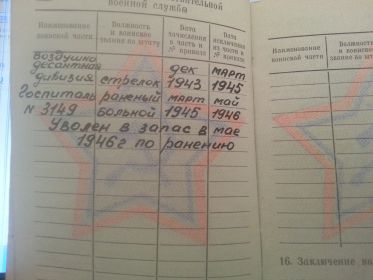 действительной
военной службы
Наименование воинской части
Должность и воинское звание по штату
Дата зачисления в часть и № приказа
Дата исключения из части и № приказа
Наименование воинской части
воздушно дек март
десантная
дивизия стрелок 1943 1945
Госпиталь раненый март май
N 3149 больной 1945 1946
Уволен в запас в мае
1946г по ранению
16. Заключение